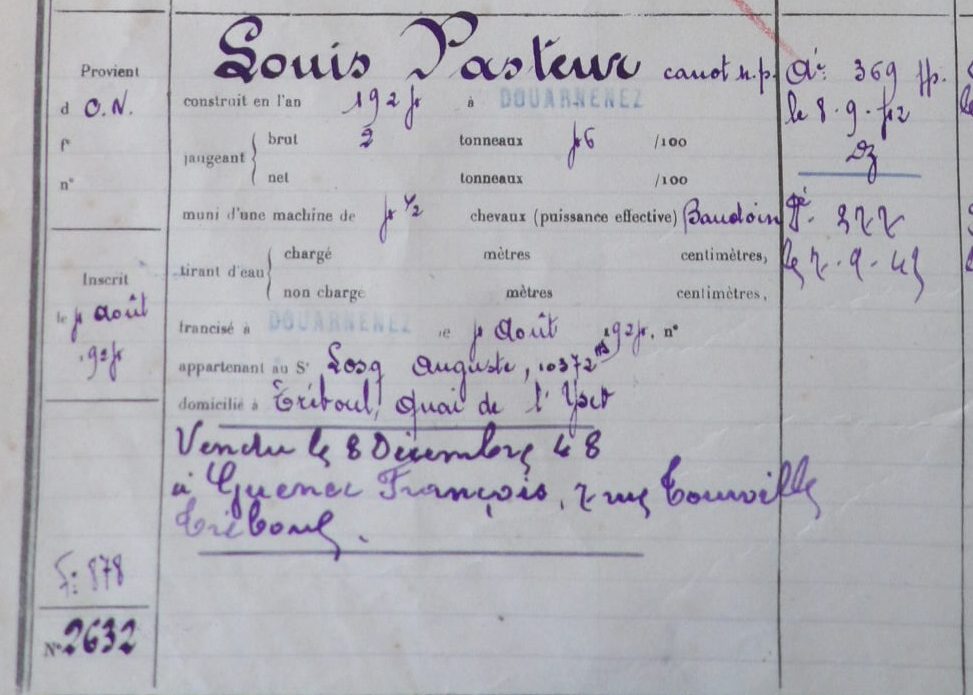 Louis Pasteur canot n.p.
Provient
d O.N.
f°
n°
construit en l'an 1925 à DOUARNENEZ
jaugeant
brut 2 tonneaux 56 /100
net tonneaux /100
muni d'une machine de 5 1/2 chevaux (puissance effective) Baudoin
tirant d'eau
chargé mètres centimètres,
non charge mètres centimètres,
Inscrit
le 5 Août
1925
francisé à DOUARNENEZ le 5 Août 1925, n°
appartenant au Sr Losq Auguste, 10372
domicilié à Tréboul, Quai de l'Yser
Vendu le 8 Décembre 48
à Guenec François, rue Tourville
Tréboul.
F: 878
N° 2632
369
le 8.9.52
Dz